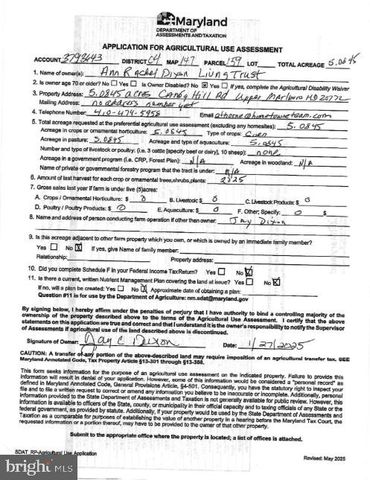 Maryland
DEPARTMENT OF
ASSESSMENTS AND TAXATION
APPLICATION FOR AGRICULTURAL USE ASSESSMENT
ACCOUNT 3792643 DISTRICT 04 MAP 147 PARCEL 159 LOT TOTAL ACREAGE 5.0845
1. Name of owner(s): Ann Rachel Dixon Living Trust
2. Is owner age 70 or older? Yes No Is Owner Disabled? No Yes If yes, complete the Agricultural Disability Waiver
3. Property Address: 5.0845 acres Candy Hill Rd Upper Marlboro MD 20772
Mailing Address: no address number yet
4. Telephone Number: 410-474-5958
5. Total acreage requested at the preferential agricultural use assessment (excluding any homesites): 5.0845
Acres in crops or ornamental horticulture: 5.0845 Type of crops:
Acres in pasture: 5.0845 Acreage and type of aquaculture: 5.0845
Number and type of livestock or poultry: (i.e. 3 cattle (specify beef or dairy), 10 sheep): none
Acreage in a government program (i.e. CRP, Forest Plan): N/A Acreage in woodland: N/A
Name of private or governmental forestry program that the tract is under: N/A
6. Amount of last harvest for each crop or ornamental trees, shrubs, plants: 2025
7. Gross sales last year if farm is under five (5) acres:
A. Crops / Ornamental Horticulture: $ 0 B. Livestock: $ 0 C. Livestock Products: $ 0
D. Poultry / Poultry Products: $ 0 E. Aquaculture: $ 0 F. Other; Specify: 0 $
8. Name and address of person conducting farm operation if other than owner: Jay Dixon
9. Is this acreage adjacent to other farm property which you own, or which is owned by an Immediate family member?
Yes No If yes, give Name of family member:
Relationship: Property address:
10. Did you complete Schedule F in your Federal Income Tax Return? Yes No
11. Is there a current, written Nutrient Management Plan covering the land at issue? Yes No
If no, will a plan be created: Yes No Approximate date of obtaining a plan:
Question #11 is for use by the Department of Agriculture: nm.sdat@maryland.gov
By signing below, I hereby affirm under the penalties of perjury that I have authority to bind a controlling majority of the
ownership of the property described above to the terms of the Agricultural Use Assessment. I certify that the above
statements on this application are true and correct and that I understand it is the owner's responsibility to notify the Supervisor
of Assessments if agricultural use of the land described above is discontinued.
Signature of Owner: Jay C Dixon Date: 1/27/2025
CAUTION: A transfer of any portion of the above-described land may require imposition of an agricultural transfer tax. SEE
Maryland Annotated Code, Tax Property Article §13.301 through §13-308.
This form seeks information for the purpose of an agricultural use assessment on the indicated property. Failure to provide this
information will result in denial of your application. However, some of this information would be considered a "personal record" as
defined in Maryland Annotated Code, General Provisions Article, §4-501. Consequently, you have the statutory right to inspect your
file and to file a written request to correct or amend any information you believe to be inaccurate or incomplete. Additionally, personal
information provided to the State Department of Assessments and Taxation is not generally available for public review. However, this
information is available to officers of the State, county, or municipality in their official capacity and to taxing officials of any State or the
federal government, as provided by statute. Additionally, if your property would be used by the State Department of Assessments and
Taxation as a comparable for purposes of establishing the value of another property in a hearing before the Maryland Tax Court, the
requested information or a portion thereof, may have to be provided to the owner of that other property.
Submit to the appropriate office where the property is located; a list of offices is attached.
SDAT_RP-Agricultural Use Application Revised: May 2025
bright MLS